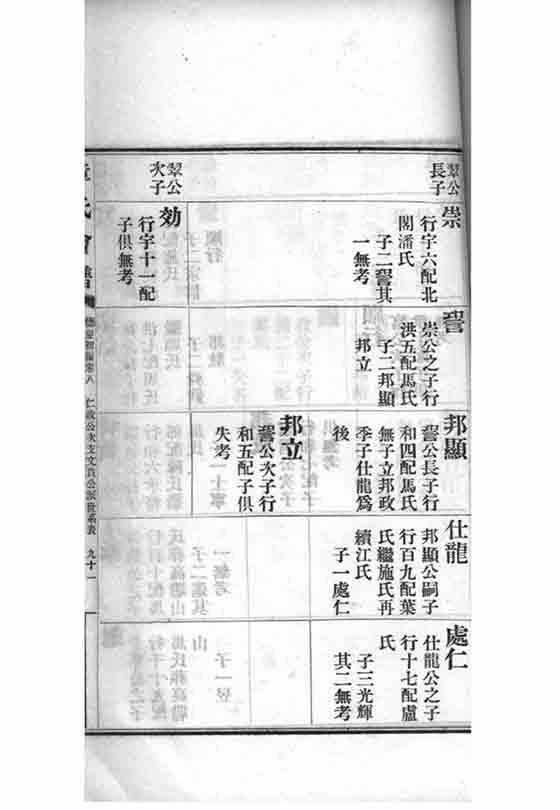 翠公
長子
崇
行字六配北
閣潘氏
子二詧其
一無考
翠公
次子
効
行字十一配
子俱無考
詧
崇公之子行
洪五配馬氏
子二邦顯
邦立
邦顯
詧公長子行
和四配馬氏
無子立邦政
季子仕龍爲
後
邦立
詧公次子行
和五配子俱
失考
仕龍
邦顯公嗣子
行百九配葉
氏繼施氏再
續江氏
子一處仁
處仁
仕龍公之子
行十七配盧
氏
子三光輝
其二無考
氏會譜
德星初編卷八
仁政公次支文貴公派世系表
九十一